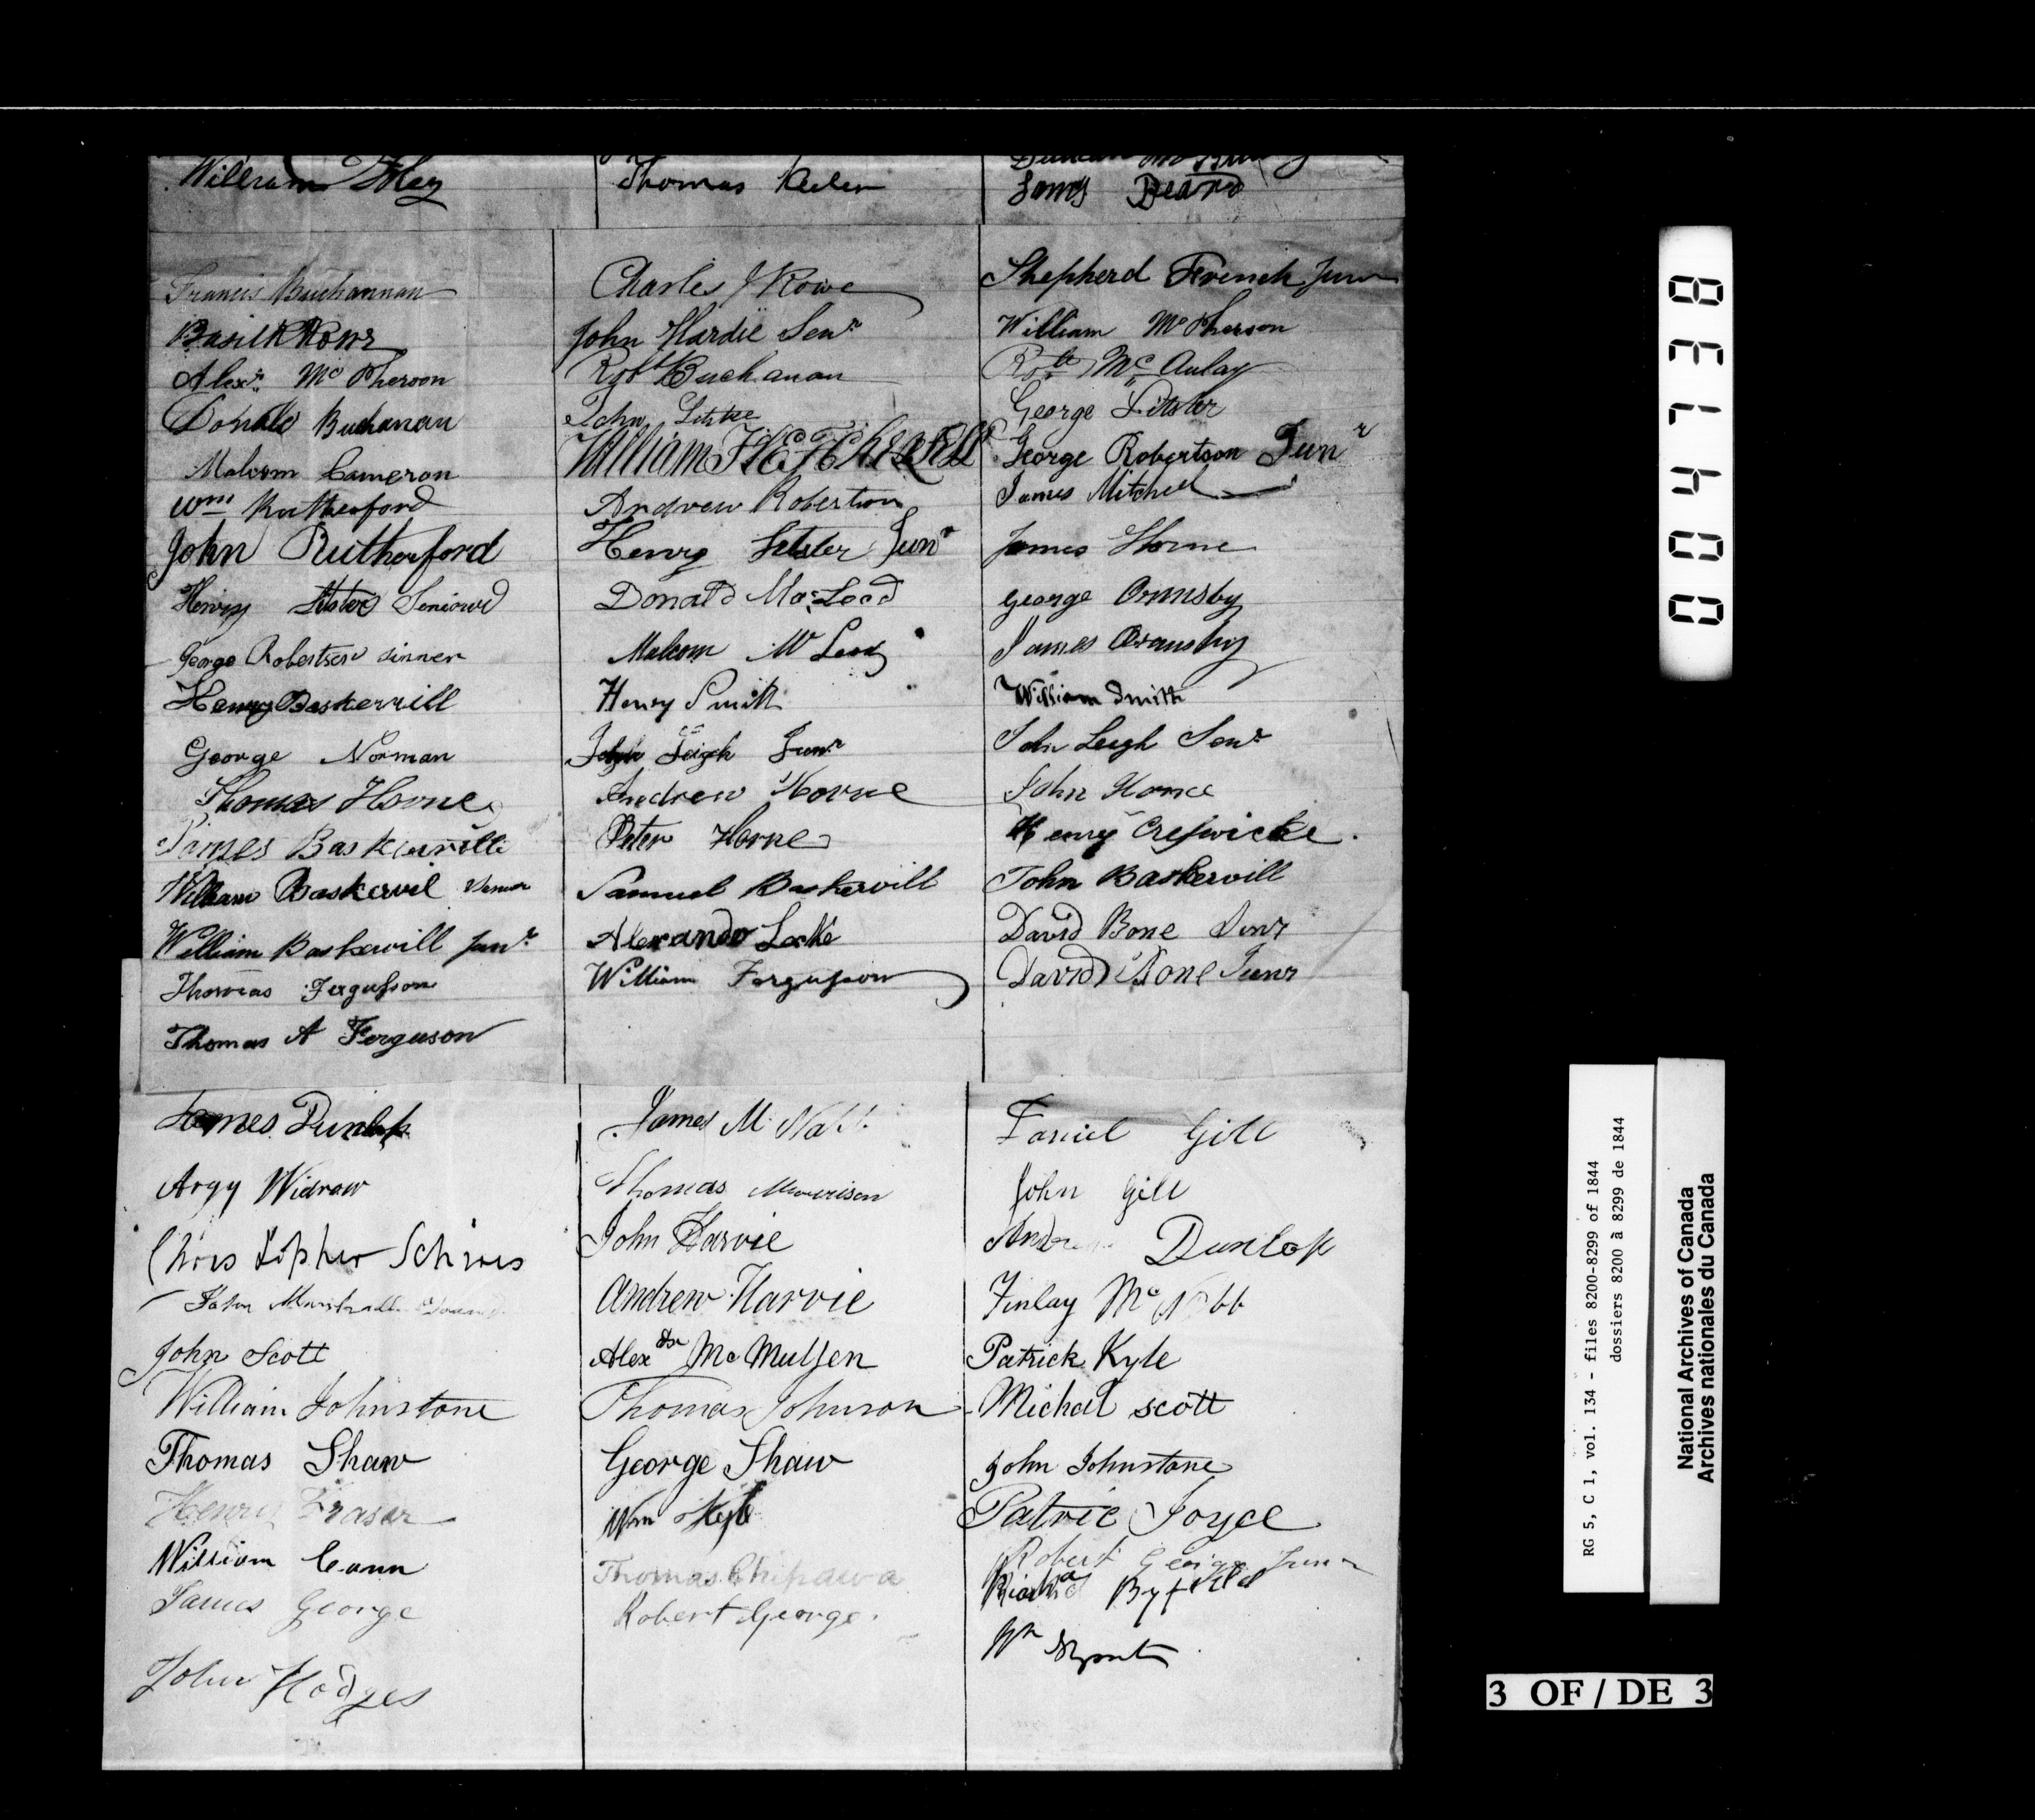 William
Thomas Keeler
James Beard
Francis Buchannan
Charles Rowe
Shepherd French Junr
Basil R Rowe
John Hardie Senr
William McPherson
Alexr McPherson
Robt Buchanan
Robt McAulay
Donald Buchanan
John
George Litster
Malcom Cameron
William
George Robertson Junr
Wm Rutherford
Andrew Robertson
James Mitchell
John Rutherford
Henry Litster Junr
James Horne
Henry Litster
Donald MacLeod
George Ormsby
George Robertson
Malcom McLeod
James Oramsby
Henry Baskervill
Henry Smith
William Smith
George Norman
John Leigh Junr
John Leigh Senr
Thomas Horne
Andrew Horne
John Horne
James Baskerville
Peter Horne
Henry Creswicke.
William Baskervil
Samuel Baskervill
John Baskervill
William Baskervill Junr
Alexander Locke
David Bone Senr
Thomas Fergusson
William Fergusson
David Bone Junr
Thomas A Ferguson
James Dunlop
James M
Daniel Gill
Argy Widraw
Thomas Mourison
John Gill
John Harvie
Dunlop
John
Andrew Harvie
Finlay McNabb
John Scott
Alexdr McMullen
Patrick Kyle
William Johnstone
Thomas Johnson
Michael scott
Thomas Shaw
George Shaw
John Johnstone
Henry Fraser
Wm Kyle
Patric Joyce
William Cann
Thomas Chipawa
Robert George Junr
James George
Robert George.
Richard Byfield
John Hodges
Wm
004748
RG 5, C 1, vol. 134 - files 8200-8299 of 1844
dossiers 8200 à 8299 de 1844
National Archives of Canada
Archives nationales du Canada
3 OF / DE 3